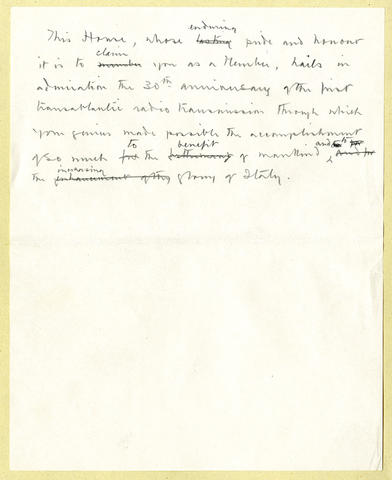 enduring
This House, whose lasting pride and honour
claim
it is to number you as a Member, hails in
admiration the 30th anniversary of the first
transatlantic radio transmission through which
your genius made possible the accomplishment
to benefit and to
of so much for the betterment of mankind and for
increasing
the enhancement of the glory of Italy.